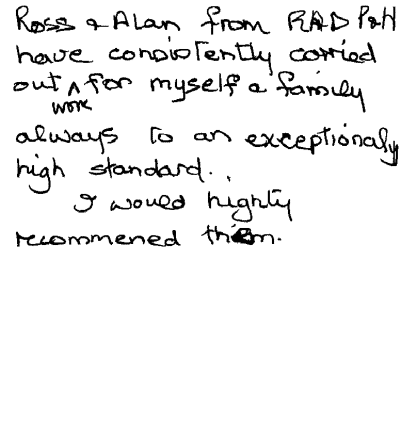 Ross & Alan from RAD P&H
have consistently carried
out ^ for myself & family
work
always to an exceptionaly
high standard..
I would highly
recommened them.